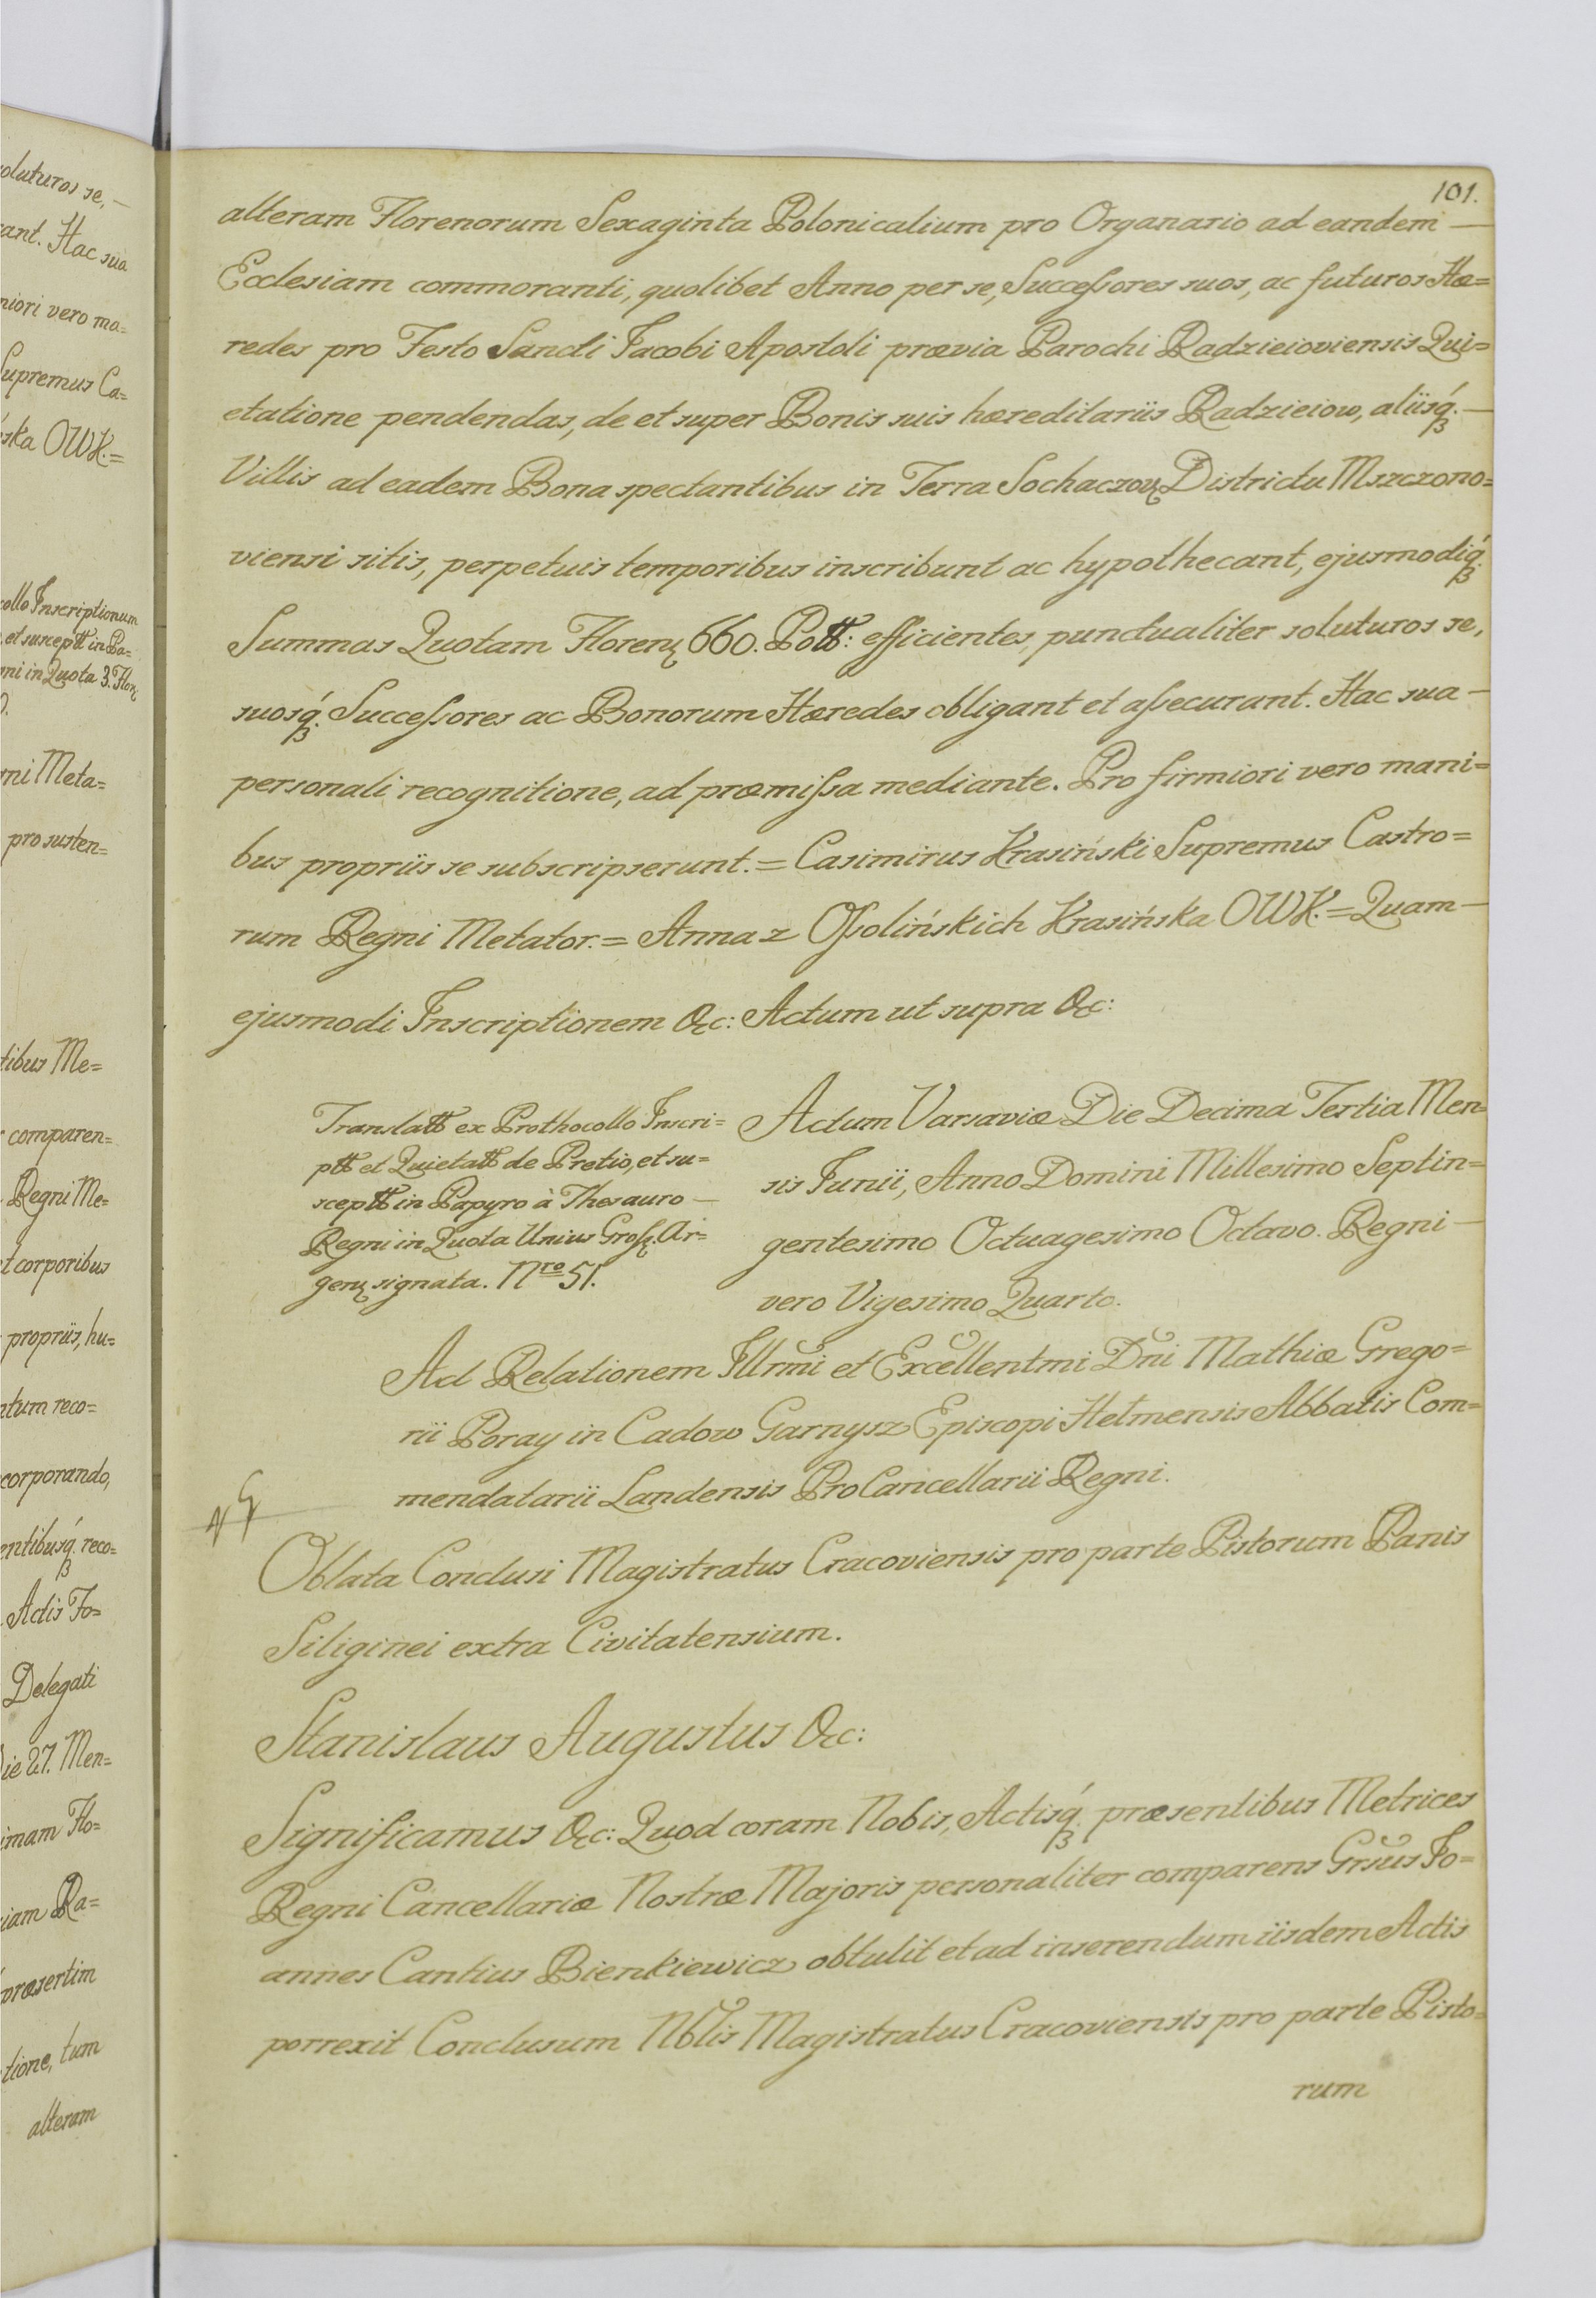 101.
alteram Florenorum Sexaginta Polonicalium pro Organario ad eandem —
Ecclesiam commoranti, quolibet Anno per se, Succeſsores suos, ac futuros Hæ=
redes pro Festo Sancti Jacobi Apostoli prævia Parochi Radzieioviensis Qui=
etatione pendendas, de et super Bonis suis hæreditariis Radzieiow, aliisq́ꝫ. —
Villis ad eadem Bona spectantibus in Terra Sochaczovꝫ Districtu Mszczono=
viensi sitis, perpetuis temporibus inscribunt ac hypothecant, ejusmodiq́ꝫ.
Summas Quotam Florenꝫ 660. Poll: efficientes, punctualiter soluturos se,
suosq́ꝫ. Succeſsores ac Bonorum Hæredes obligant et aſsecurant. Hac sua —
personali recognitione, ad præmiſsa mediante. Pro firmiori vero mani=
bus propriis se subscripserunt. = Casimirus Krasiński Supremus Castro=
rum Regni Metator. = Anna z Oſsolińskich Krasińska OWK. = Quam —
ejusmodi Inscriptionem &c: Actum ut supra &c:
Translatt ex Prothocollo Inscri=
ptt et Quietatt de Pretio, et su=
sceptt in Papyro à Thesauro —
Regni in Quota Unius Groſsꝫ Ar=
genꝫ signata. Nro 51.
Actum Varsaviæ Die Decima Tertia Men=
sis Junii, Anno Domini Millesimo Septin=
gentesimo Octuagesimo Octavo. Regni —
vero Vigesimo Quarto.
Ad Relationem Illrmi et Excellentmi Dni Mathiæ Grego=
rii Poray in Cadow Garnysz Episcopi Hełmensis Abbatis Com=
mendatarii Landensis ProCancellarii Regni.
Oblata Conclusi Magistratus Cracoviensis pro parte Pistorum Panis
Siliginei extra Civitatensium.
Stanislaus Augustus &c:
Significamus &c: Quod coram Nobis, Actisq́ꝫ. præsentibus Metrices
Regni Cancellariæ Nostræ Majoris personaliter comparens Grsus Jo=
annes Cantius Bienkiewicz obtulit et ad inserendum iisdem Actis
porrexit Conclusum Nblis Magistratus Cracoviensis pro parte Pisto=
rum